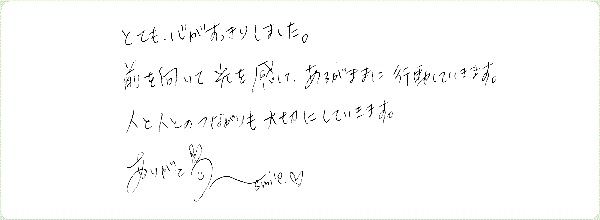 とても、心がすっきりしました。
前を向いて光を感じて、あるがままに行動していきます。
人と人とのつながりも大切にしていきます。
ありがとう
smile.